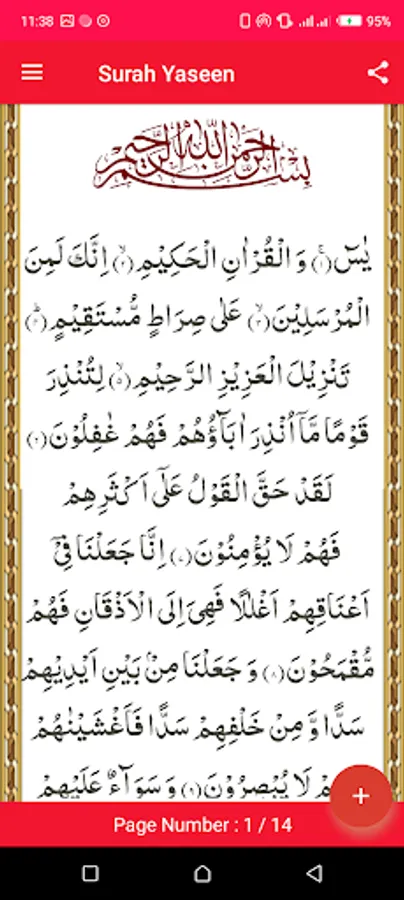 11:38
95%
Surah Yaseen
بِسْمِ اللّٰهِ الرَّحْمٰنِ الرَّحِيْمِ
يٰسٓ ﴿۱﴾ وَ الْقُرْاٰنِ الْحَكِيْمِ ﴿۲﴾ اِنَّكَ لَمِنَ
الْمُرْسَلِيْنَ ﴿۳﴾ عَلٰى صِرَاطٍ مُّسْتَقِيْمٍ ﴿۴﴾
تَنْزِيْلَ الْعَزِيْزِ الرَّحِيْمِ ﴿۵﴾ لِتُنْذِرَ
قَوْمًا مَّاۤ اُنْذِرَ اٰبَآؤُهُمْ فَهُمْ غٰفِلُوْنَ ﴿۶﴾
لَقَدْ حَقَّ الْقَوْلُ عَلٰۤى اَكْثَرِهِمْ
فَهُمْ لَا يُؤْمِنُوْنَ ﴿۷﴾ اِنَّا جَعَلْنَا فِيْۤ
اَعْنَاقِهِمْ اَغْلٰلًا فَهِيَ اِلَى الْاَذْقَانِ فَهُمْ
مُّقْمَحُوْنَ ﴿۸﴾ وَ جَعَلْنَا مِنْۢ بَيْنِ اَيْدِيْهِمْ
سَدًّا وَّ مِنْ خَلْفِهِمْ سَدًّا فَاَغْشَيْنٰهُمْ
لَا يُبْصِرُوْنَ ﴿۹﴾ وَ سَوَآءٌ عَلَيْهِمْ
Page Number : 1 / 14